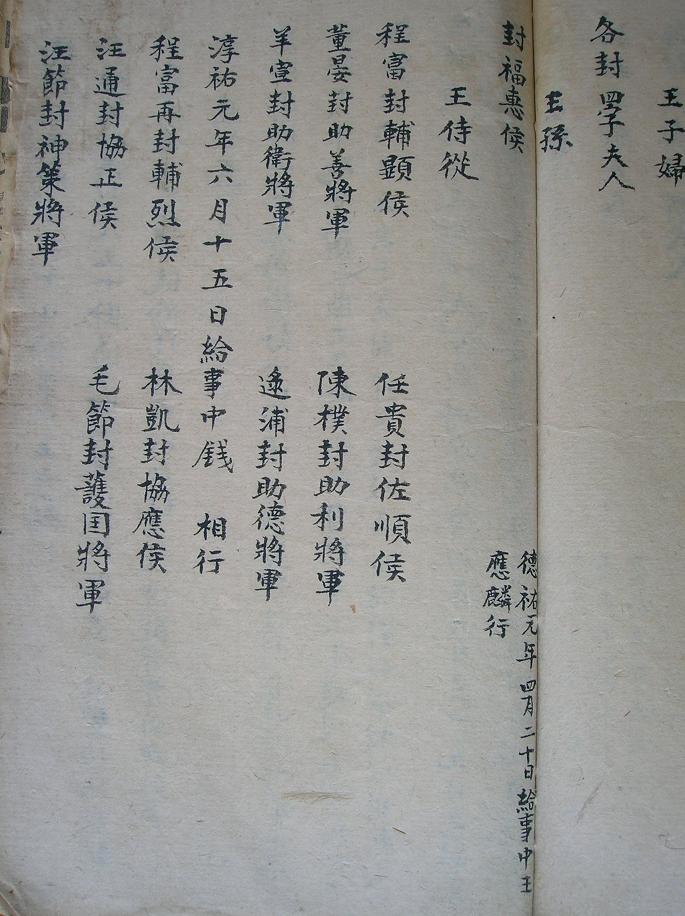 王子婦
各封四字夫人
王孫
封福惠侯
德祐元年四月二十日給事中王
應麟行
王侍從
程富封輔顯侯 任貴封佐順侯
董晏封助善將軍 陳樸封助利將軍
羊宣封助衛將軍 逯浦封助德將軍
淳祐元年六月十五日給事中錢 相行
程富再封輔烈侯 林凱封協應侯
汪通封協正侯 毛節封護国將軍
汪節封神策將軍